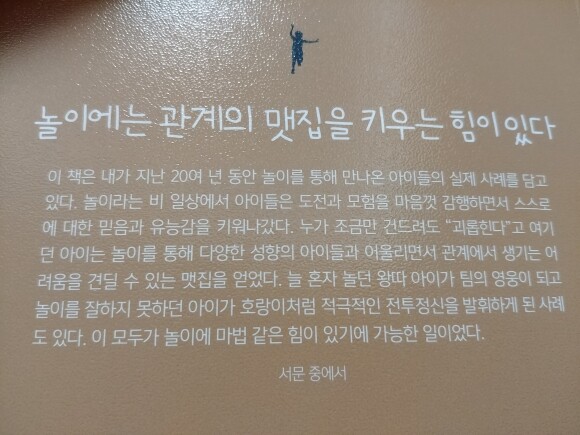 놀이에는 관계의 맷집을 키우는 힘이 있다
이 책은 내가 지난 20여 년 동안 놀이를 통해 만나온 아이들의 실제 사례를 담고
있다. 놀이라는 비 일상에서 아이들은 도전과 모험을 마음껏 감행하면서 스스로
에 대한 믿음과 유능감을 키워나갔다. 누가 조금만 건드려도 “괴롭힌다”고 여기
던 아이는 놀이를 통해 다양한 성향의 아이들과 어울리면서 관계에서 생기는 어
려움을 견딜 수 있는 맷집을 얻었다. 늘 혼자 놀던 왕따 아이가 팀의 영웅이 되고
놀이를 잘하지 못하던 아이가 호랑이처럼 적극적인 전투정신을 발휘하게 된 사례
도 있다. 이 모두가 놀이에 마법 같은 힘이 있기에 가능한 일이었다.
서문 중에서